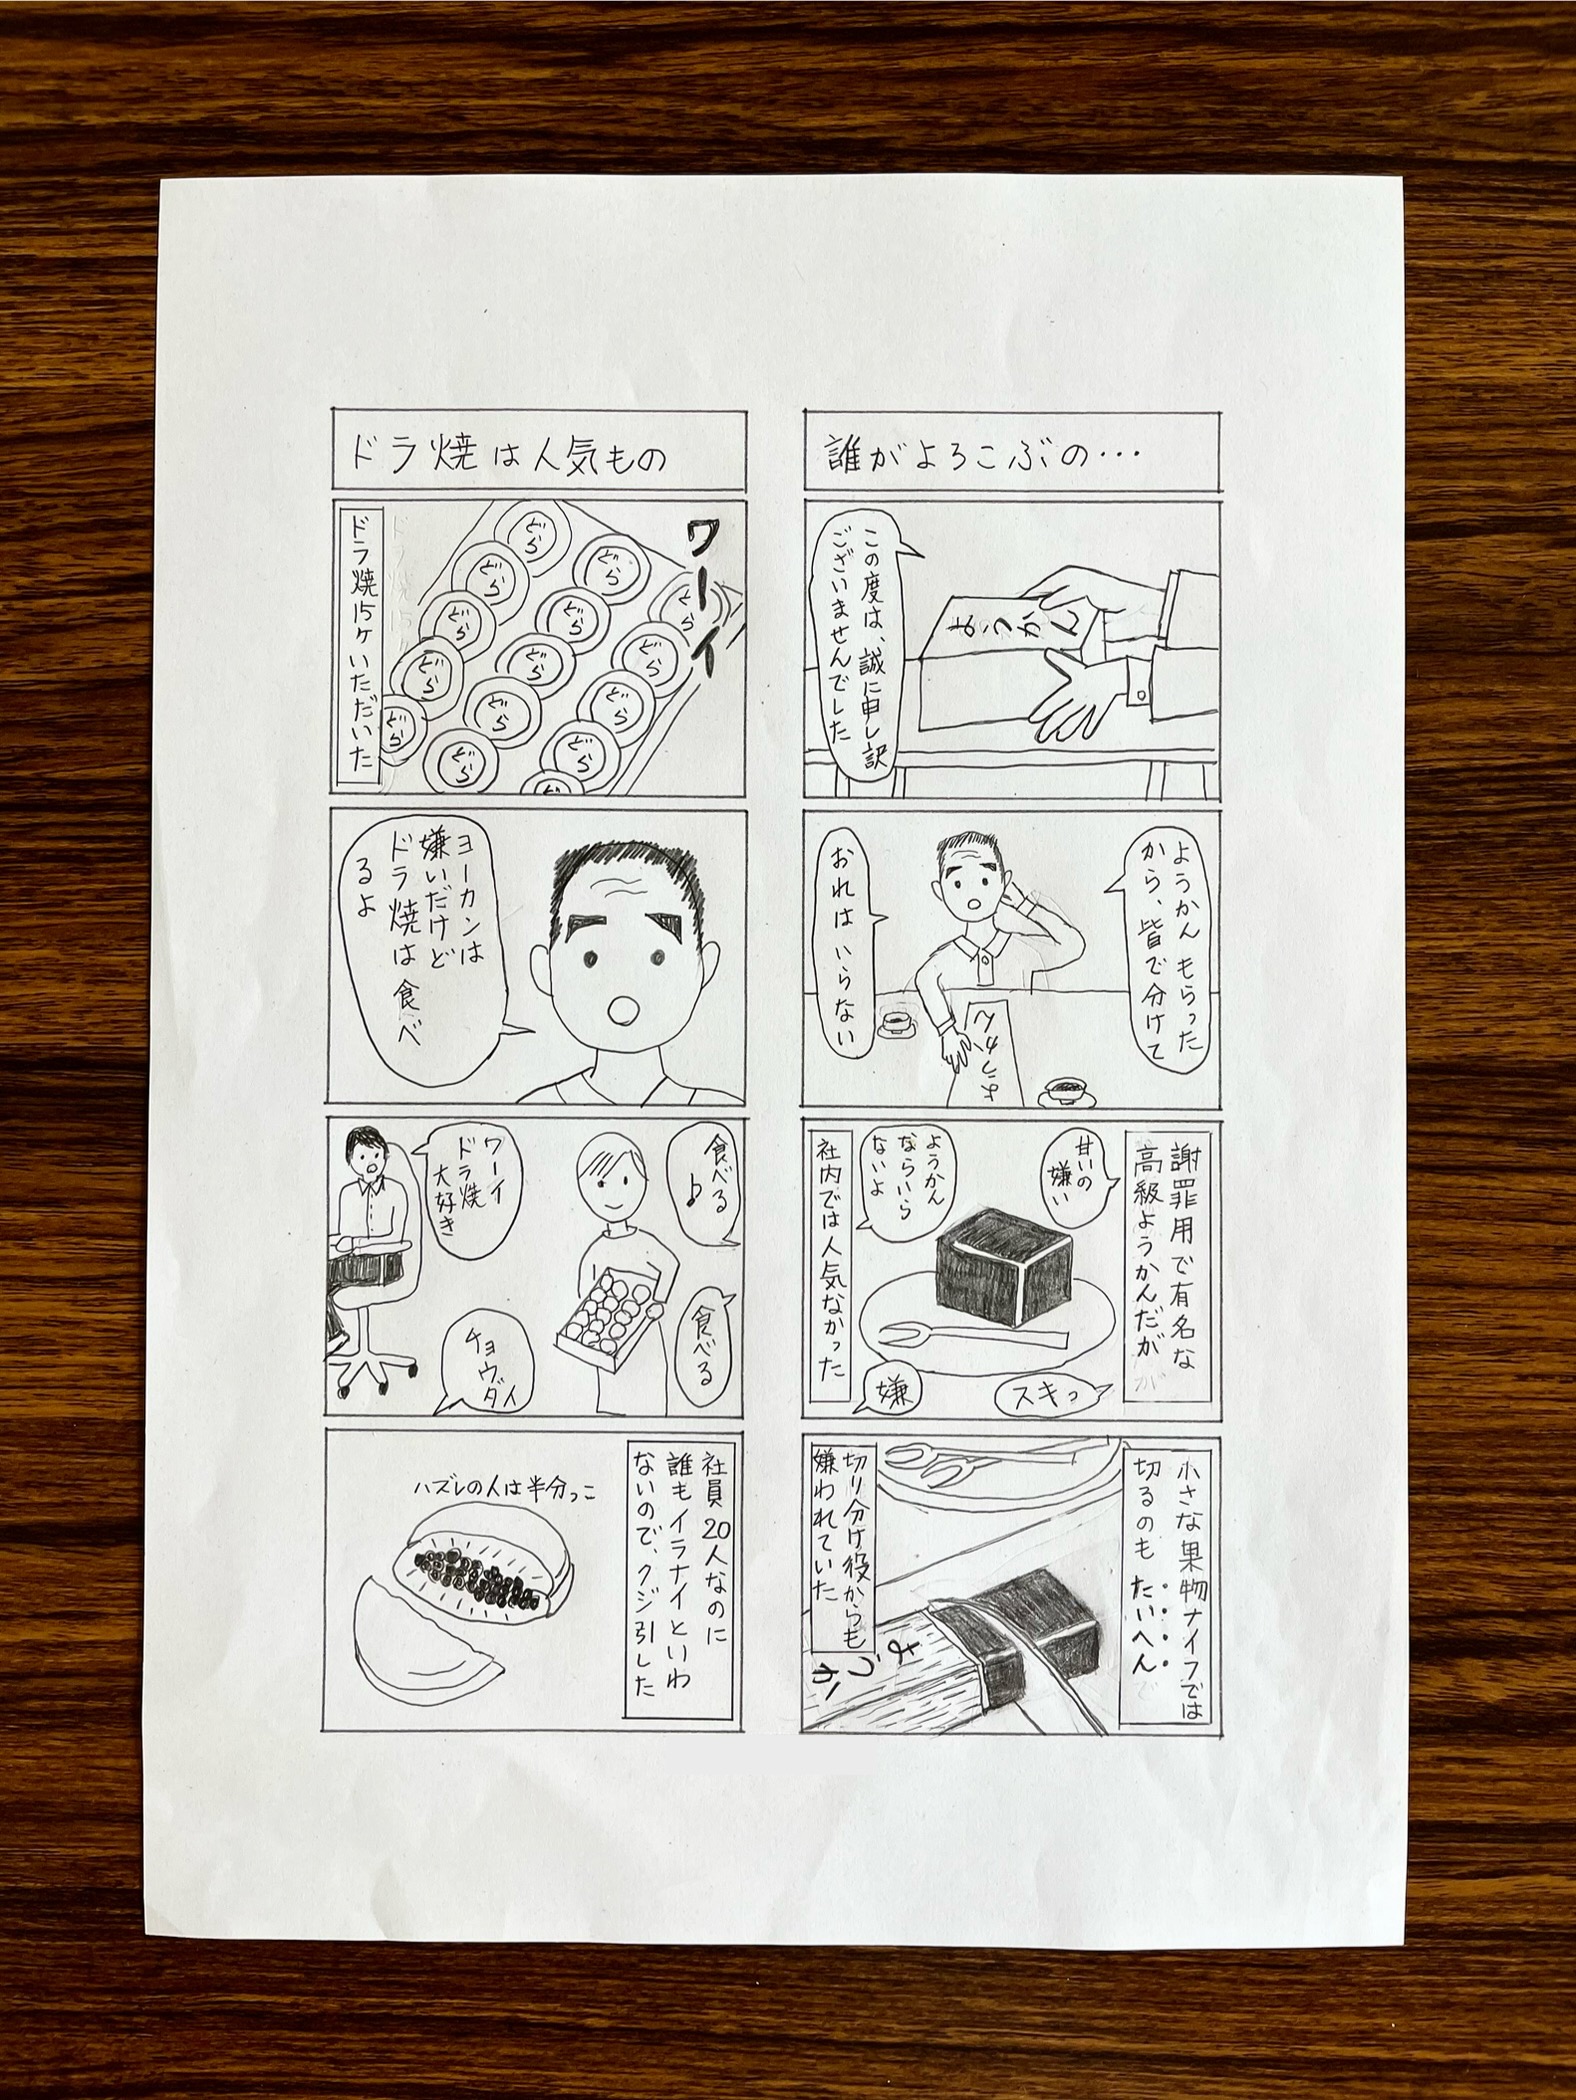 誰がよろこぶの…
この度は、誠に申し訳
ございませんでした
ようかん
ようかんもらった
から、皆で分けて
おれはいらない
ようかん
謝罪用で有名な
高級ようかんだが
甘いの
嫌い
ようかん
ならいら
ないよ
スキっ
嫌
社内では人気なかった
小さな果物ナイフでは
切るのもたいへんで
切り分け役からも
嫌われていた
ようか
ドラ焼は人気もの
ワーイ
どら
どら
どら
どら
どら
どら
どら
どら
どら
どら
どら
どら
どら
ドラ焼15ヶいただいた
ヨーカンは
嫌いだけど
ドラ焼は食べ
るよ
食べる♪
食べる
ワーイ
ドラ焼
大好き
チョウダイ
社員20人なのに
誰もイラナイといわ
ないので、クジ引した
ハズレの人は半分っこ